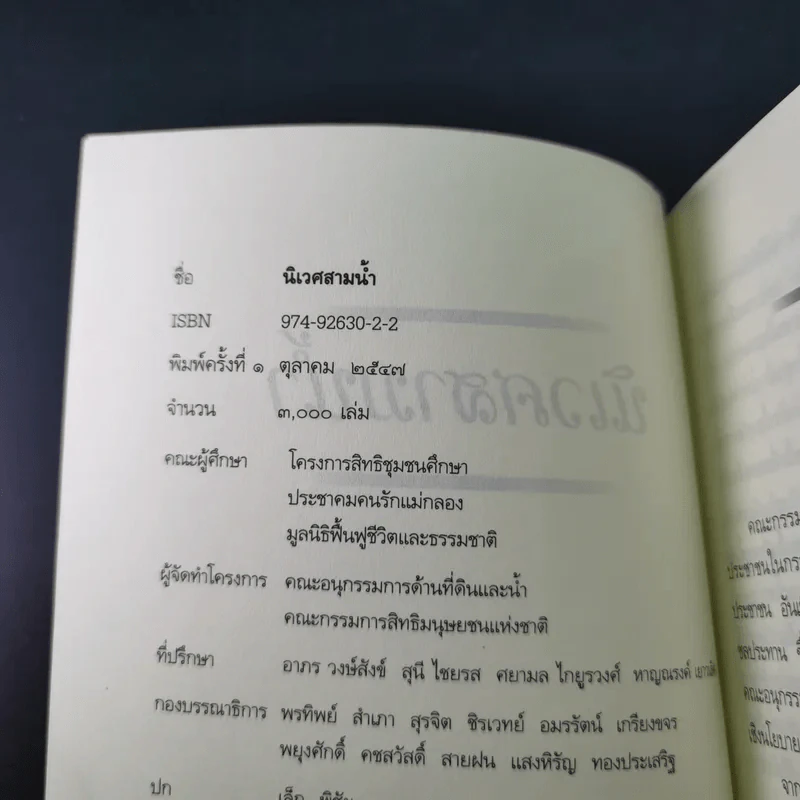 ชื่อ นิเวศสามน้ำ
ISBN 974-92630-2-2
พิมพ์ครั้งที่ ๑ ตุลาคม ๒๕๔๗
จำนวน ๓,๐๐๐ เล่ม
คณะผู้ศึกษา โครงการสิทธิชุมชนศึกษา
ประชาคมคนรักแม่กลอง
มูลนิธิฟื้นฟูชีวิตและธรรมชาติ
ผู้จัดทำโครงการ คณะอนุกรรมการด้านที่ดินและน้ำ
คณะกรรมการสิทธิมนุษยชนแห่งชาติ
ที่ปรึกษา อาภร วงษ์สังข์ สุนี ไชยรส ศยามล ไกยูรวงศ์ หาญณรงค์
กองบรรณาธิการ พรทิพย์ สำเภา สุรจิต ชิรเวทย์ อมรรัตน์ เกรียงขจร
พยุงศักดิ์ คชสวัสดิ์ สายฝน แสงหิรัญ ทองประเสริฐ
ปก เล็ก
คณะกรรม
ประชาชนในกร
ประชาชน
ชลประทาน
คณะอนุกรร
เชิงนโยบาย
จาก